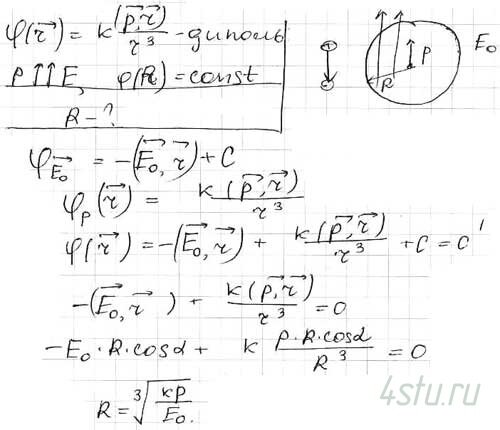 φ(r⃗) = k (p⃗, r⃗) / r³ - диполь
p ↑↑ E, φ(R) = const
R - ?
E₀
P
R
φ_E⃗₀ = -(E⃗₀, r⃗) + C
φ_p(r⃗) = k(p⃗, r⃗) / r³
φ(r⃗) = -(E⃗₀, r⃗) + k(p⃗, r⃗) / r³ + C = C'
-(E⃗₀, r⃗) + k(p⃗, r⃗) / r³ = 0
-E₀·R·cosα + k P·R·cosα / R³ = 0
R = ³√(kp / E₀).
4stu.ru